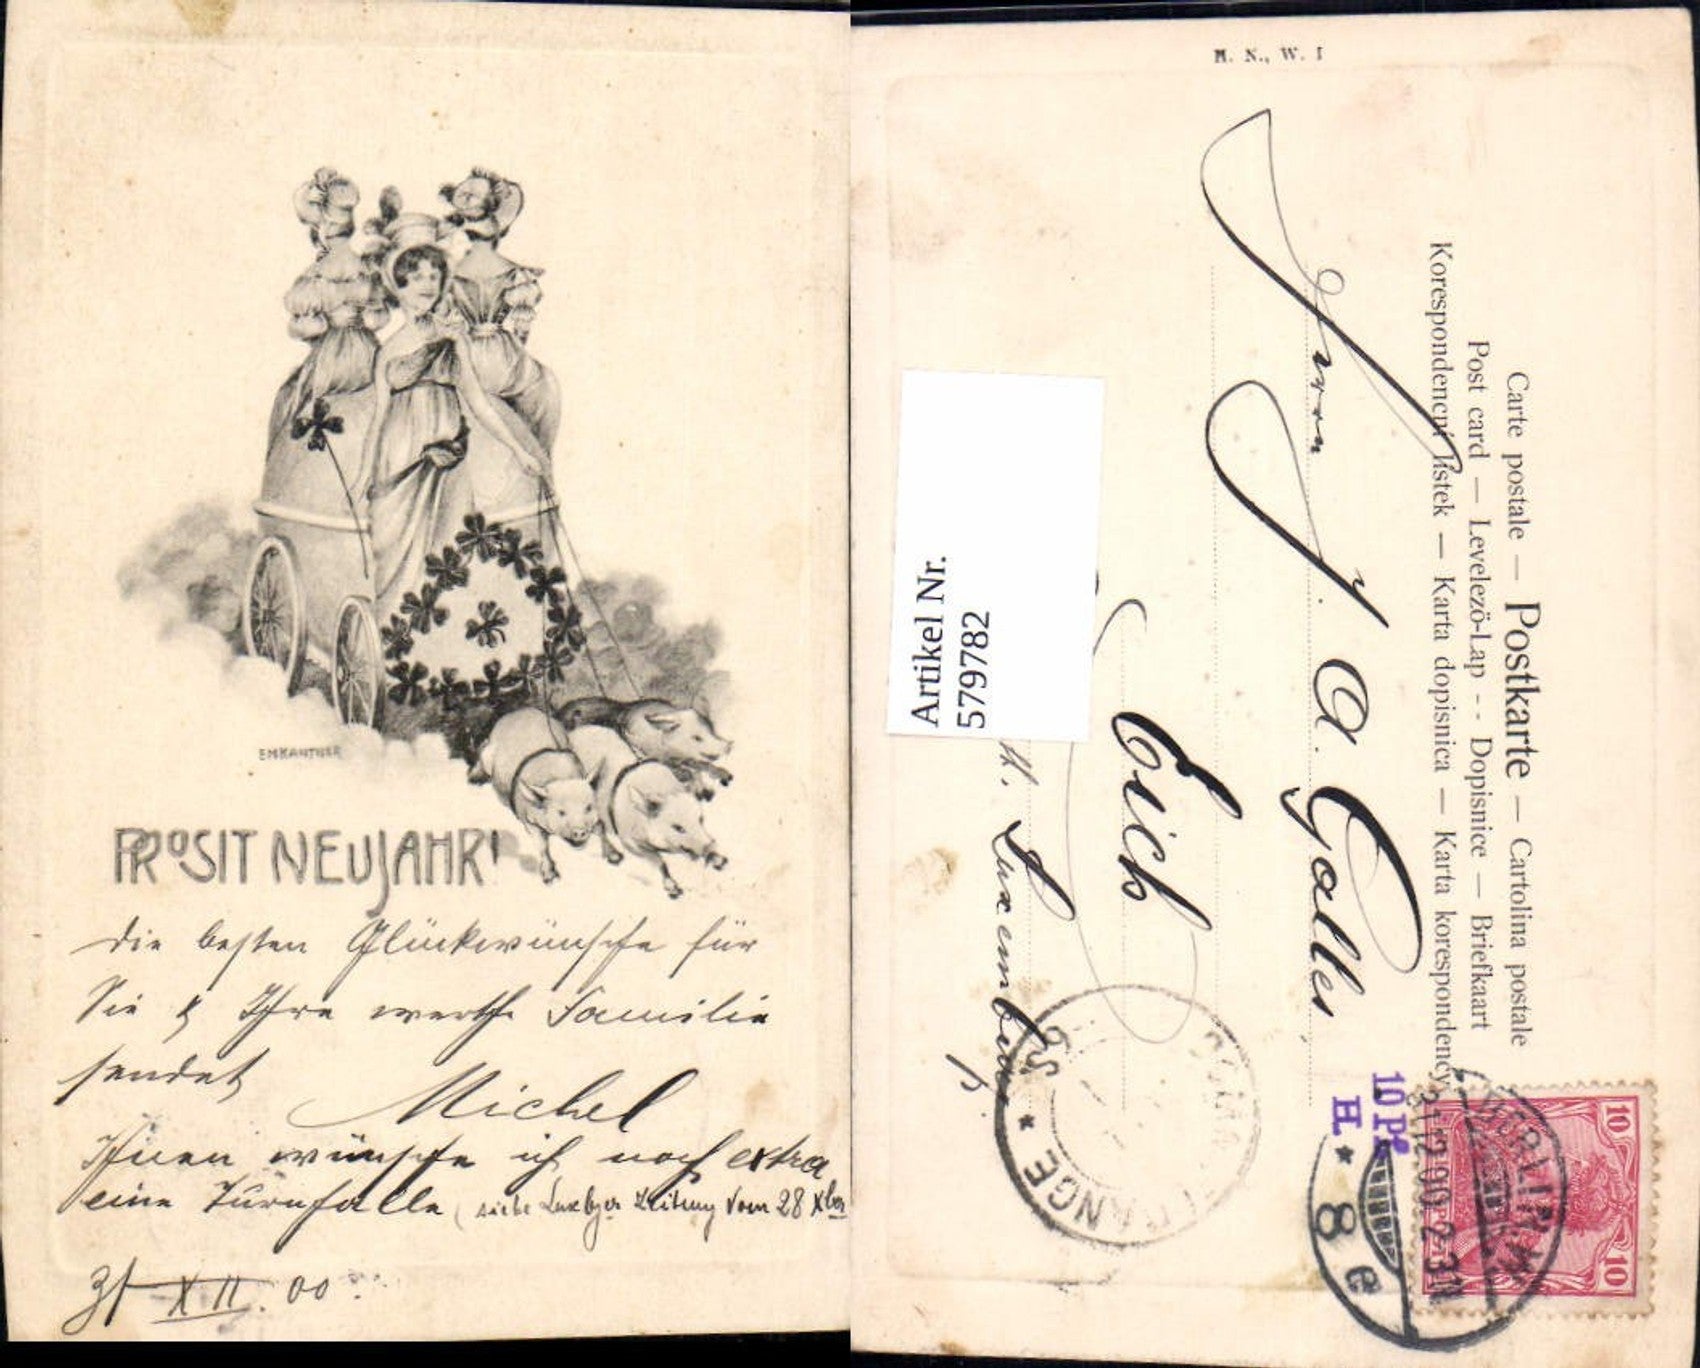 EMKANTNER
PROSIT NEUJAHR!
Die besten Glückwünsche für
Sie & Ihre werthe Familie
sendet
Michel
Ihnen wünsche ich noch extra
eine Turnhalle (siehe Luxbger Zeitung vom 28 Xber
31 XII. 00
M. N., W. I
Carte postale — Postkarte — Cartolina postale
Post card — Levelezö-Lap -- Dopisnice — Briefkaart
Korespondencni listek — Karta dopisnica — Karta korespondency
Herrn
J. A. Galles
Eich
Luxemburg
Artikel Nr.
5799782
10 Pf
H.
BERLIN, W.
31.12.00. 2-3N
* 8 e
10
10